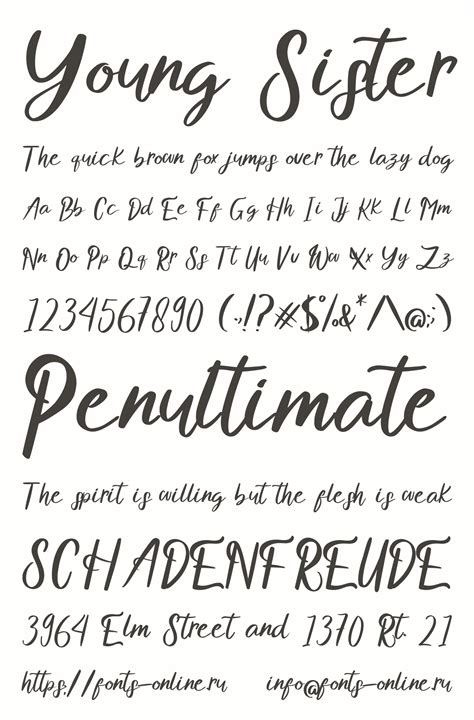 Young Sister
The quick brown fox jumps over the lazy dog
Aa Bb Cc Dd Ee Ff Gg Hh Ii Jj Kk Ll Mm
Nn Oo Pp Qq Rr Ss Tt Uu Vv Ww Xx Yy Zz
1234567890 (.,!?#$%&*/\@;:)
Penultimate
The spirit is willing but the flesh is weak
SCHADENFREUDE
3964 Elm Street and 1370 Rt. 21
https://fonts-online.ru info@fonts-online.ru